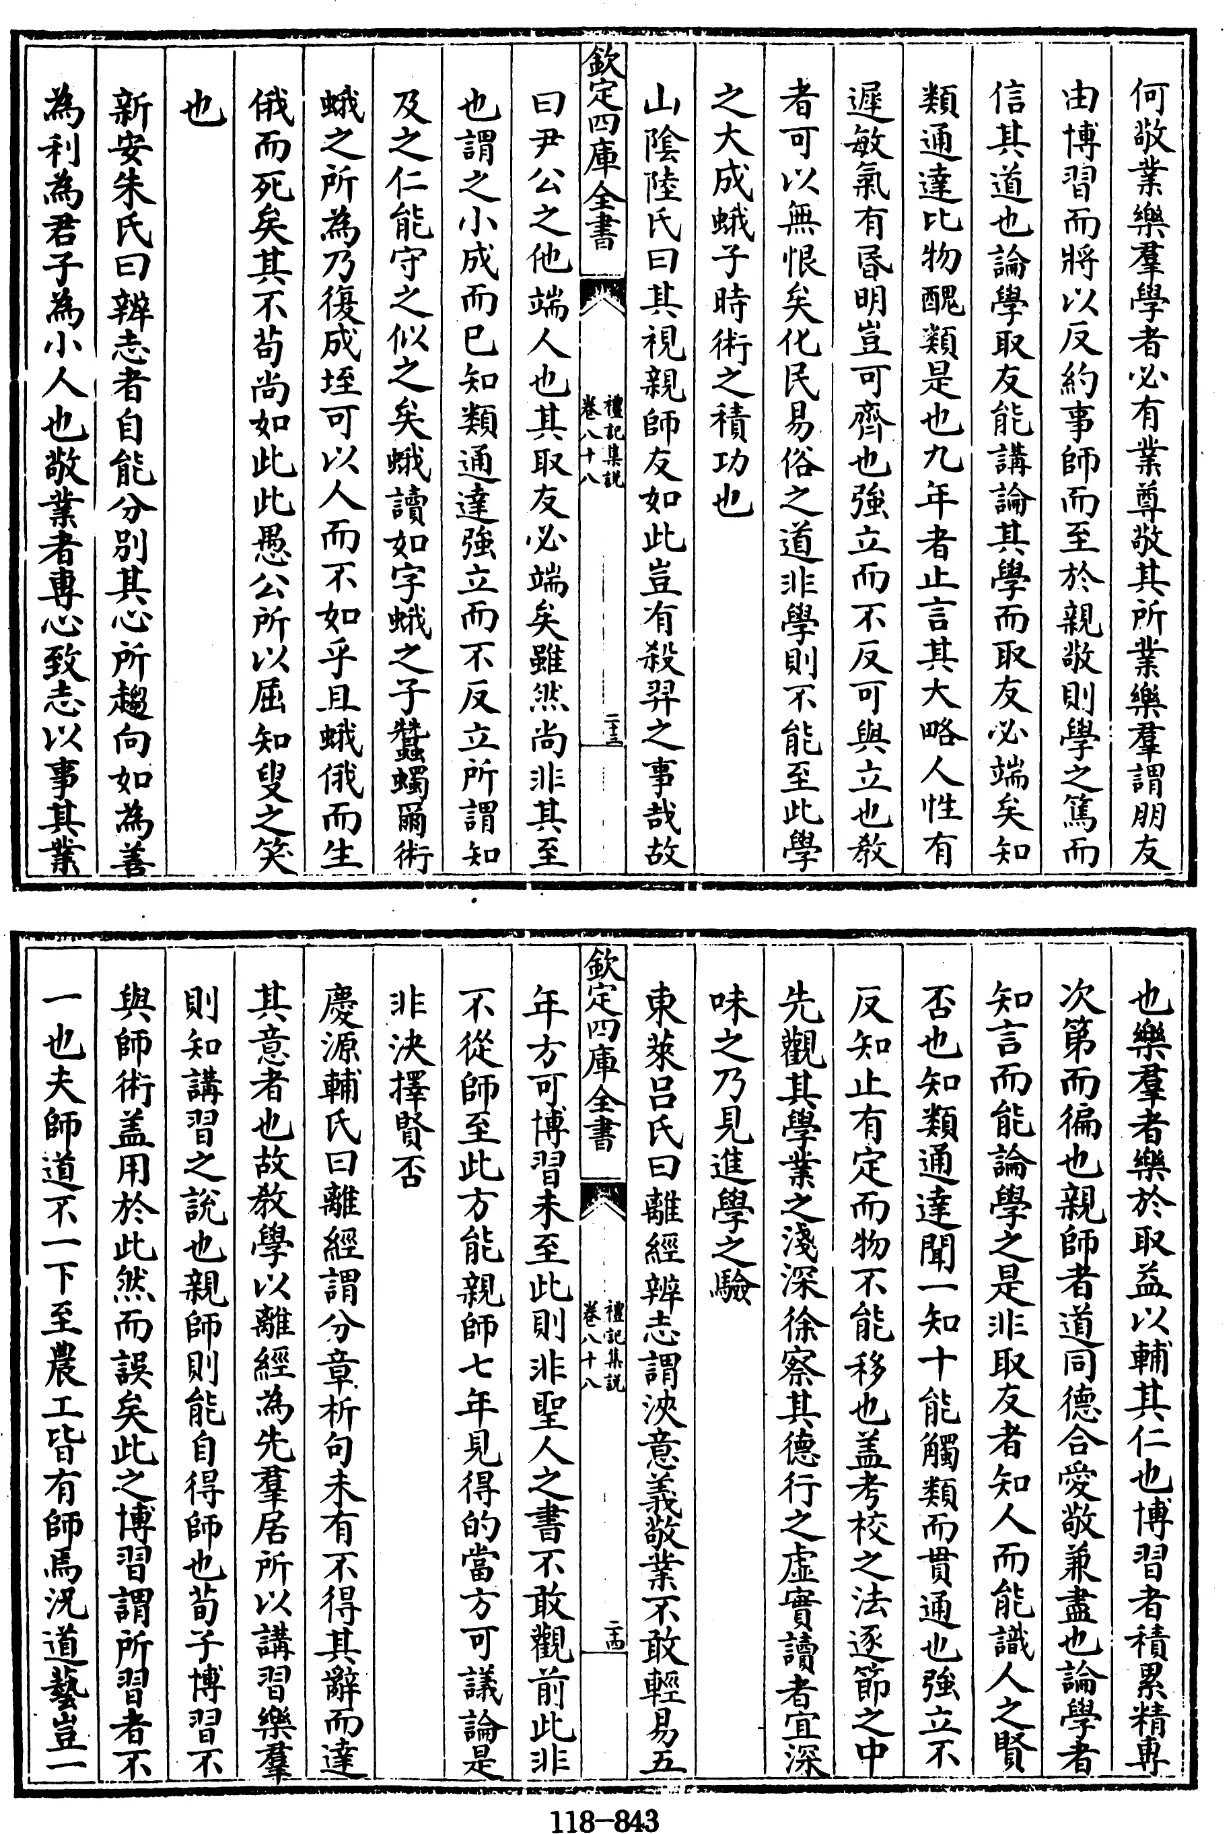 何敬業樂羣學者必有業尊敬其所業樂羣謂朋友
由博習而將以反約事師而至於親敬則學之篤而
信其道也論學取友能講論其學而取友必端矣知
類通達比物醜類是也九年者止言其大略人性有
遲敏氣有昏明豈可齊也強立而不反可與立也敎
者可以無恨矣化民易俗之道非學則不能至此學
之大成蛾子時術之積功也
山陰陸氏曰其視親師友如此豈有殺羿之事哉故
欽定四庫全書
禮記集說
卷八十八
二十三
曰尹公之他端人也其取友必端矣雖然尚非其至
也謂之小成而已知類通達強立而不反立所謂知
及之仁能守之似之矣蛾讀如字蛾之子蠶蠋爾術
蛾之所為乃復成垤可以人而不如乎且蛾俄而生
俄而死矣其不茍尚如此此愚公所以屈知叟之笑
也
新安朱氏曰辨志者自能分別其心所趨向如為善
為利為君子為小人也敬業者專心致志以事其業
也樂羣者樂於取益以輔其仁也博習者積累精專
次第而徧也親師者道同德合愛敬兼盡也論學者
知言而能論學之是非取友者知人而能識人之賢
否也知類通達聞一知十能觸類而貫通也強立不
反知止有定而物不能移也盖考校之法逐節之中
先觀其學業之淺深徐察其德行之虛實讀者宜深
味之乃見進學之驗
東萊呂氏曰離經辨志謂浹意義敬業不敢輕易五
欽定四庫全書
禮記集說
卷八十八
二十四
年方可博習未至此則非聖人之書不敢觀前此非
不從師至此方能親師七年見得的當方可議論是
非決擇賢否
慶源輔氏曰離經謂分章析句未有不得其辭而達
其意者也故敎學以離經為先羣居所以講習樂羣
則知講習之說也親師則能自得師也荀子博習不
與師術盖用於此然而誤矣此之博習謂所習者不
一也夫師道不一下至農工皆有師焉況道藝豈一
118-843